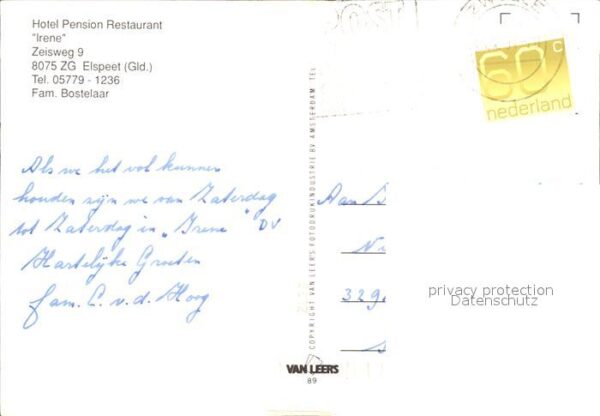 Hotel Pension Restaurant
"Irene"
Zeisweg 9
8075 ZG Elspeet (Gld.)
Tel. 05779 - 1236
Fam. Bostelaar
Als we het vol kunnen
houden zijn we van Zaterdag
tot Zaterdag in „Irene" DV
Hartelijke Groeten
fam. C. v. d. Hoog
COPYRIGHT VAN LEER'S FOTODRUKINDUSTRIE BV AMSTERDAM TEL
VAN LEERS
89
60 c
nederland
Aan
329
privacy protection
Datenschutz